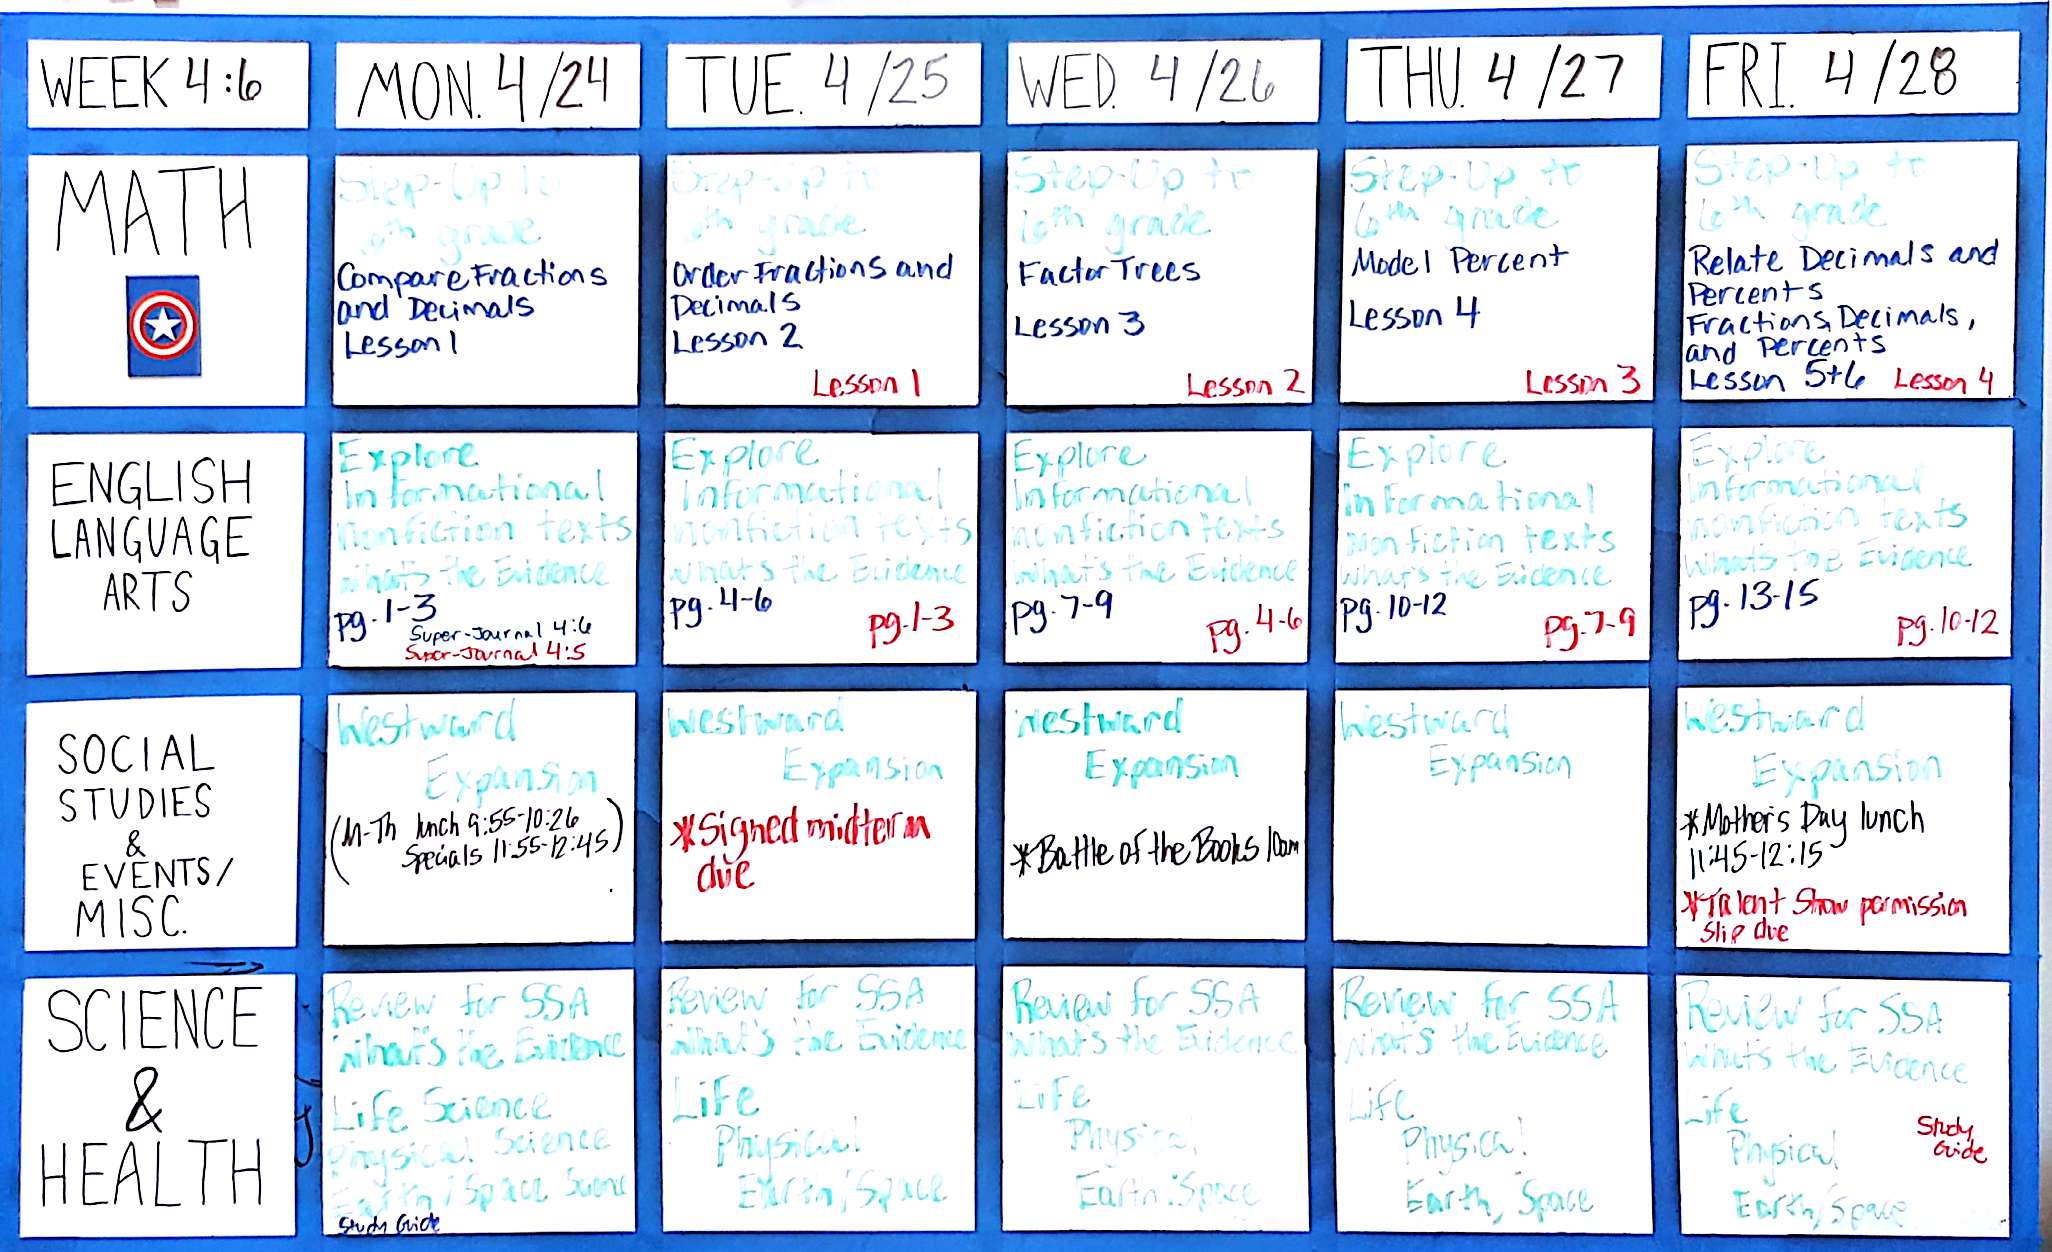 WEEK 4:6
MON. 4/24
TUE. 4/25
WED. 4/26
THU. 4/27
FRI. 4/28
MATH
Step-Up to
6th grade
Compare Fractions
and Decimals
Lesson 1
Step-Up to
6th grade
Order Fractions and
Decimals
Lesson 2
Lesson 1
Step-Up to
6th grade
Factor Trees
Lesson 3
Lesson 2
Step-Up to
6th grade
Model Percent
Lesson 4
Lesson 3
Step-Up to
6th grade
Relate Decimals and
Percents
Fractions, Decimals,
and Percents
Lesson 5+6 Lesson 4
ENGLISH
LANGUAGE
ARTS
Explore
Informational
nonfiction texts
What's the Evidence
pg. 1-3
Super-Journal 4:6
Super-Journal 4:5
Explore
Informational
nonfiction texts
What's the Evidence
pg. 4-6
pg. 1-3
Explore
Informational
nonfiction texts
What's the Evidence
pg. 7-9
pg. 4-6
Explore
Informational
nonfiction texts
What's the Evidence
pg. 10-12
pg. 7-9
Explore
Informational
nonfiction texts
What's the Evidence
pg. 13-15
pg. 10-12
SOCIAL
STUDIES
&
EVENTS/
MISC.
Westward
Expansion
(M-Th lunch 9:55-10:26
Specials 11:55-12:45)
Westward
Expansion
*Signed midterm
due
Westward
Expansion
*Battle of the Books 10am
Westward
Expansion
Westward
Expansion
*Mother's Day lunch
11:45-12:15
*Talent Show permission
slip due
SCIENCE
&
HEALTH
Review for SSA
What's the Evidence
Life Science
Physical Science
Earth/Space Science
Study Guide
Review for SSA
What's the Evidence
Life
Physical
Earth/Space
Review for SSA
What's the Evidence
Life
Physical
Earth/Space
Review for SSA
What's the Evidence
Life
Physical
Earth/Space
Review for SSA
What's the Evidence
Life
Physical
Earth/Space
Study
Guide